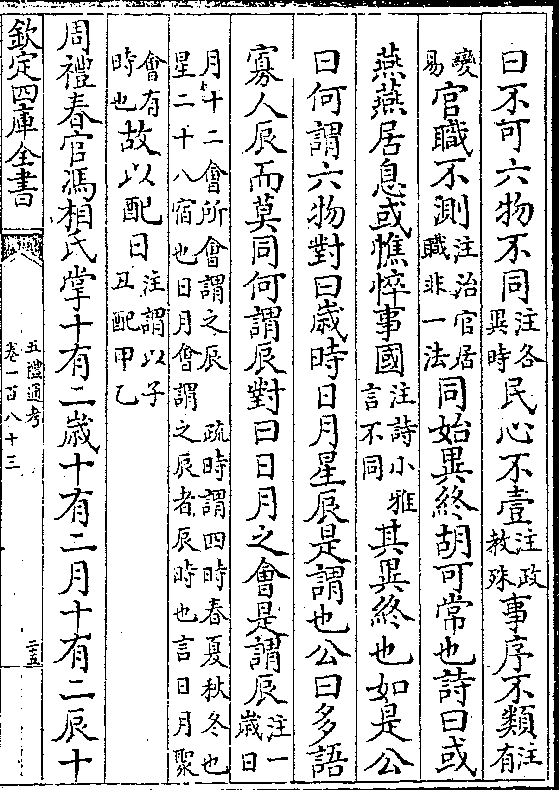 曰不可六物不同注各異時民心不壹注政教殊事序不類注有
變易官職不測注治官居職非一法同始異終胡可常也詩曰或
燕燕居息或憔悴事國注詩小雅言不同其異終也如是公
曰何謂六物對曰歲時日月星辰是謂也公曰多語
寡人辰而莫同何謂辰對曰日月之會是謂辰注一歲日
月十二會所會謂之辰疏時謂四時春夏秋冬也星二十八宿也日月會謂之辰者辰時也言日月聚
會有時也故以配日注謂以子丑配甲乙
周禮春官馮相氏掌十有二歲十有二月十有二辰十
欽定四庫全書
五禮通考
卷一百八十三
二五